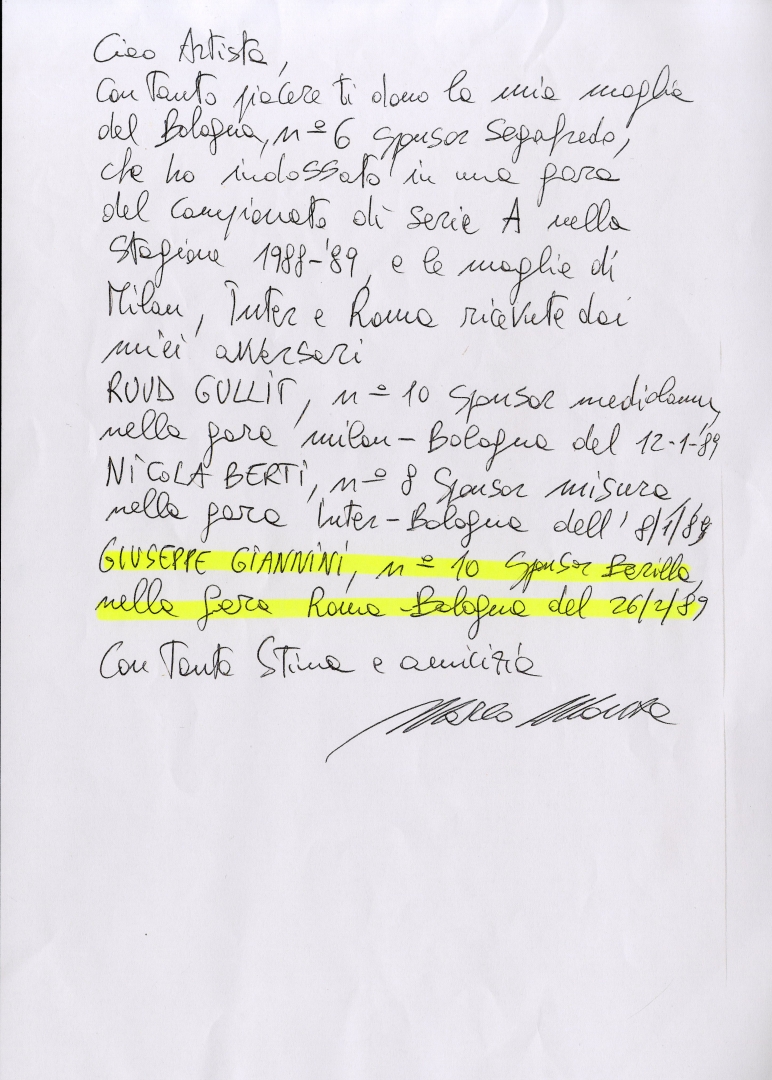 Ciao Artista,
Con Tanto piacere ti dono la mia maglia
del Bologna, nº 6 sponsor Segafredo,
che ho indossato in una gara
del campionato di serie A nella
stagione 1988-'89, e le maglie di
Milan, Inter e Roma ricevute dai
miei avversari
RUUD GULLIT, nº 10 sponsor mediolanum,
nella gara milan-Bologna del 12-1-'89
NICOLA BERTI, nº 8 sponsor misura,
nella gara Inter-Bologna dell' 8/1/89
GIUSEPPE GIANNINI, nº 10 sponsor Barilla,
nella gara Roma-Bologna del 26/2/89
Con Tanta Stima e amicizia
Marco